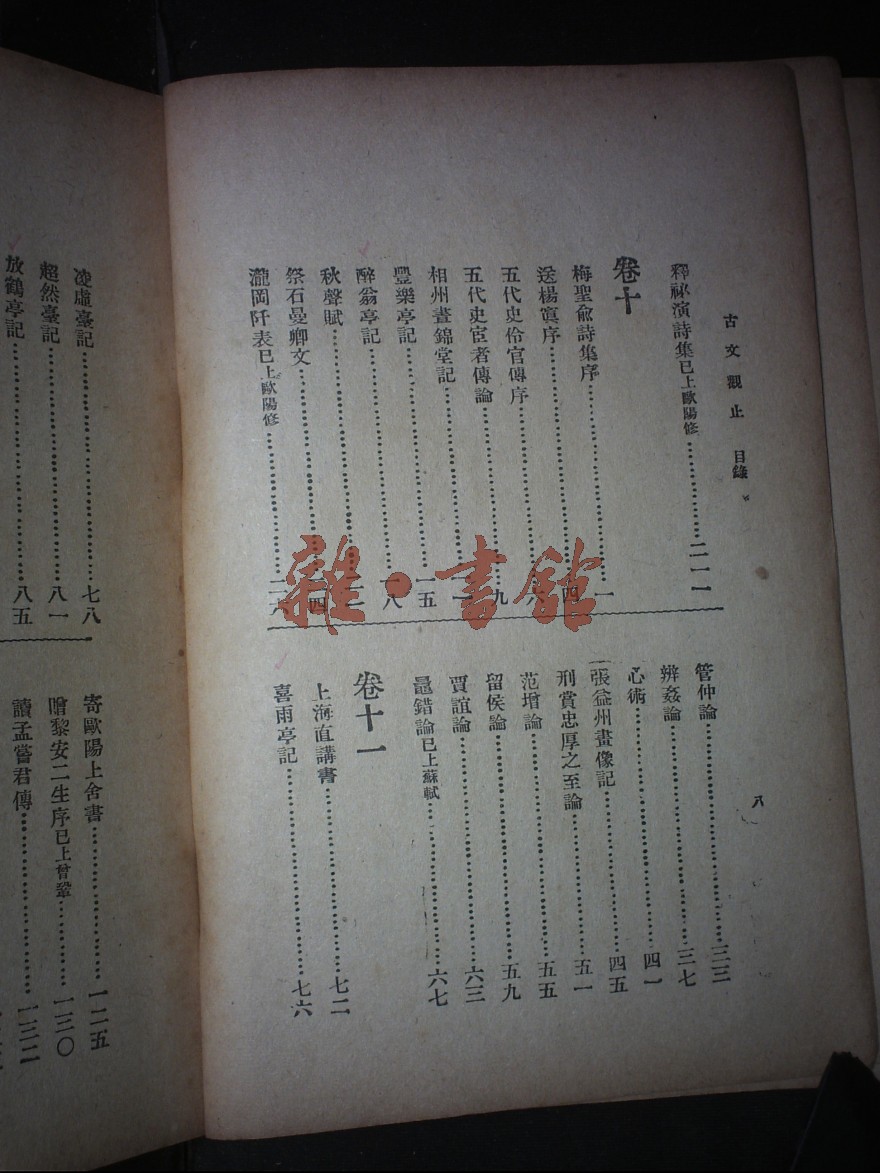 古文觀止 目錄
八
釋祕演詩集已上歐陽修…………二一一
卷十
梅聖俞詩集序…………一
送楊寘序…………四
五代史伶官傳序…………六
五代史宦者傳論…………九
相州晝錦堂記…………
豐樂亭記…………一五
醉翁亭記…………一八
秋聲賦…………二一
祭石曼卿文…………二四
瀧岡阡表已上歐陽修…………二六
管仲論…………三三
辨姦論…………三七
心術…………四一
張益州畫像記…………四五
刑賞忠厚之至論…………五一
范增論…………五五
留侯論…………五九
賈誼論…………六三
鼂錯論已上蘇軾…………六七
卷十一
上海直講書…………七二
喜雨亭記…………七六
凌虛臺記…………七八
超然臺記…………八一
放鶴亭記…………八五
寄歐陽上舍書…………一二五
贈黎安二生序已上曾鞏…………一三〇
讀孟嘗君傳…………一三二
雜·書館